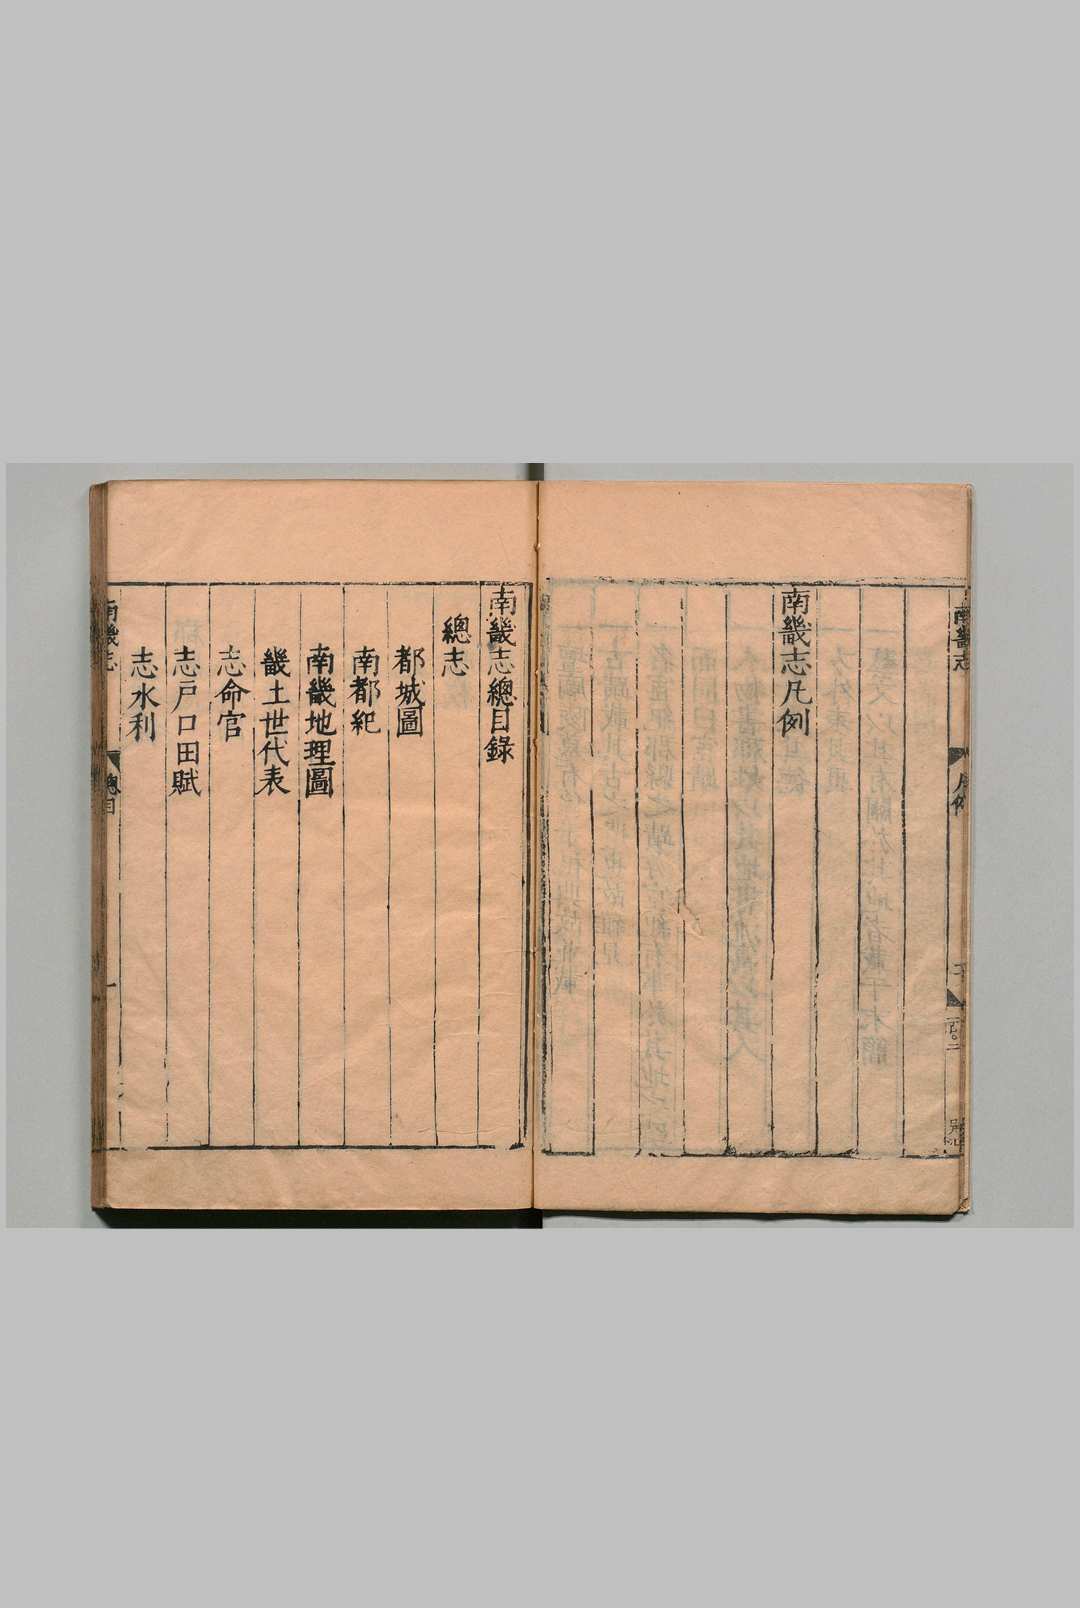 南畿志
南畿志凡例
南畿志總目錄
總志
都城圖
南都紀
南畿地理圖
畿土世代表
志命官
志戶口田賦
志水利
南畿志
總目
一